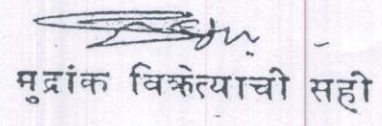 मुद्रांक विक्रेत्याची सही